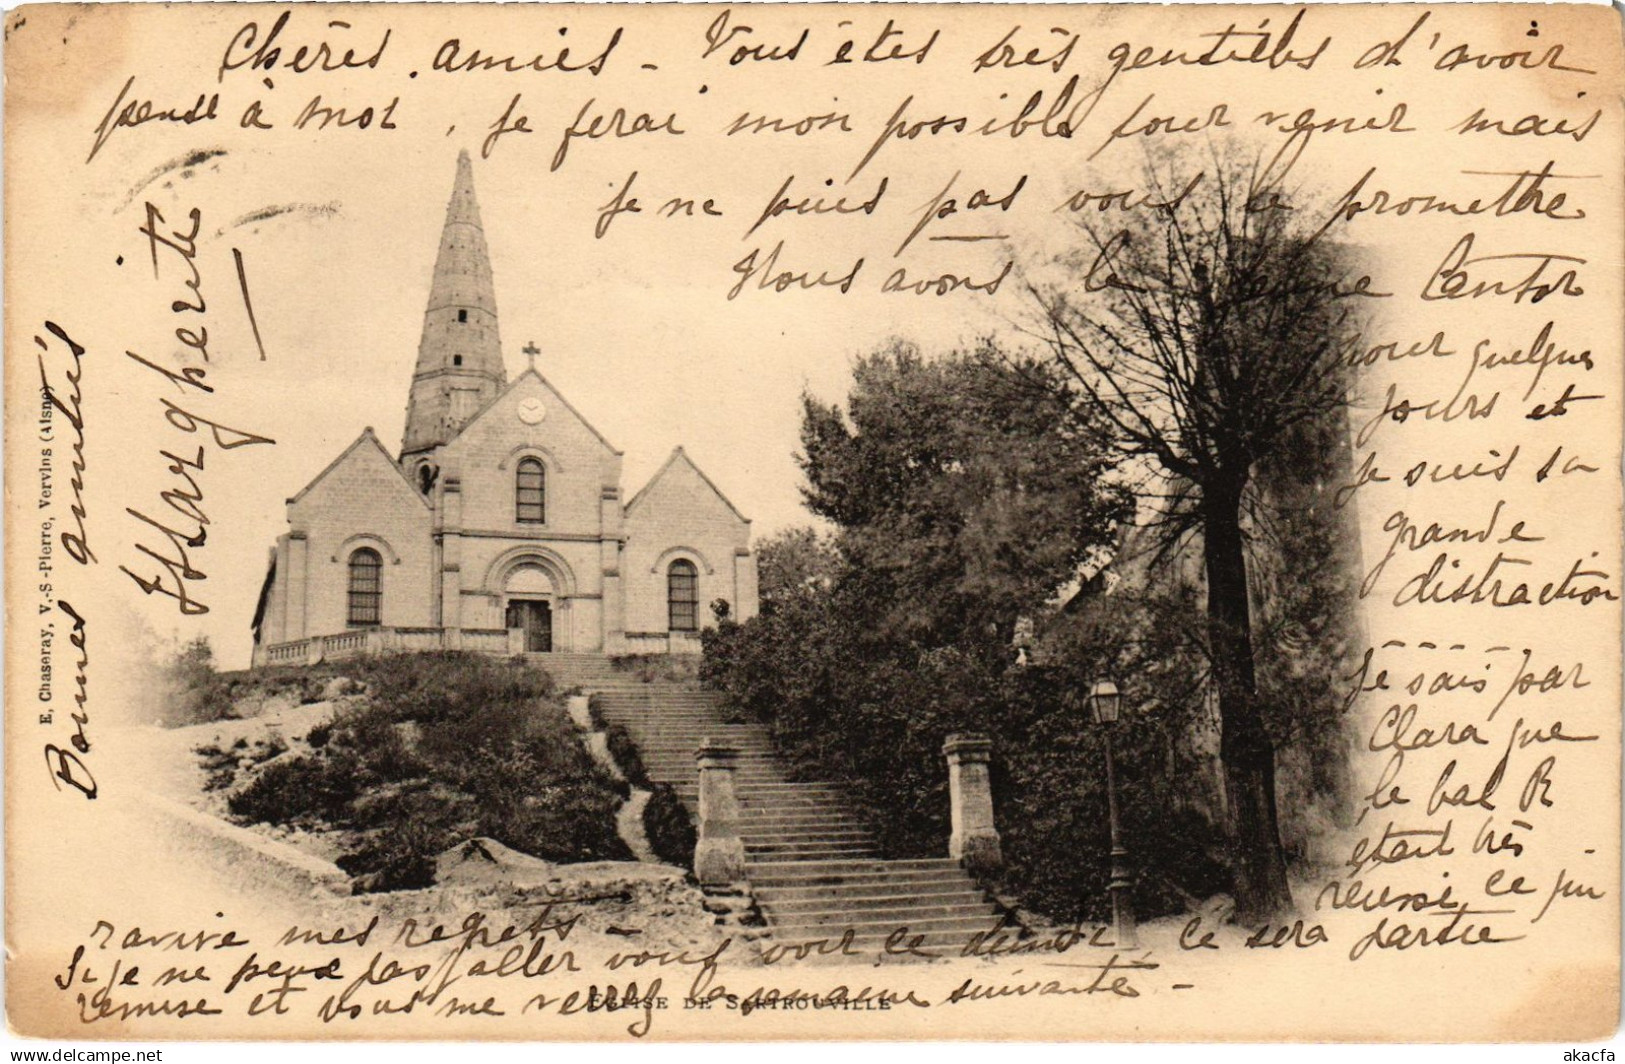 Chères amies - Vous êtes très gentilles d'avoir
pensé à moi, je ferai mon possible pour venir mais
je ne puis pas vous le promettre
Nous avons le jeune Cantor
pour quelques
jours et
je suis sa
grande
distraction
Je sais par
Clara que
le bal R
était très
réussi, ce qui
ravive mes regrets -
Si je ne peux pas aller vous voir ce dimanche ce sera partie
remise et vous me verrez la semaine suivante -
Bonnes amitiés
Marguerite
E. Chaseray, V.-S-Pierre, Vervins (Aisne)
ÉGLISE DE SARTROUVILLE
akacfa
delcampe.net